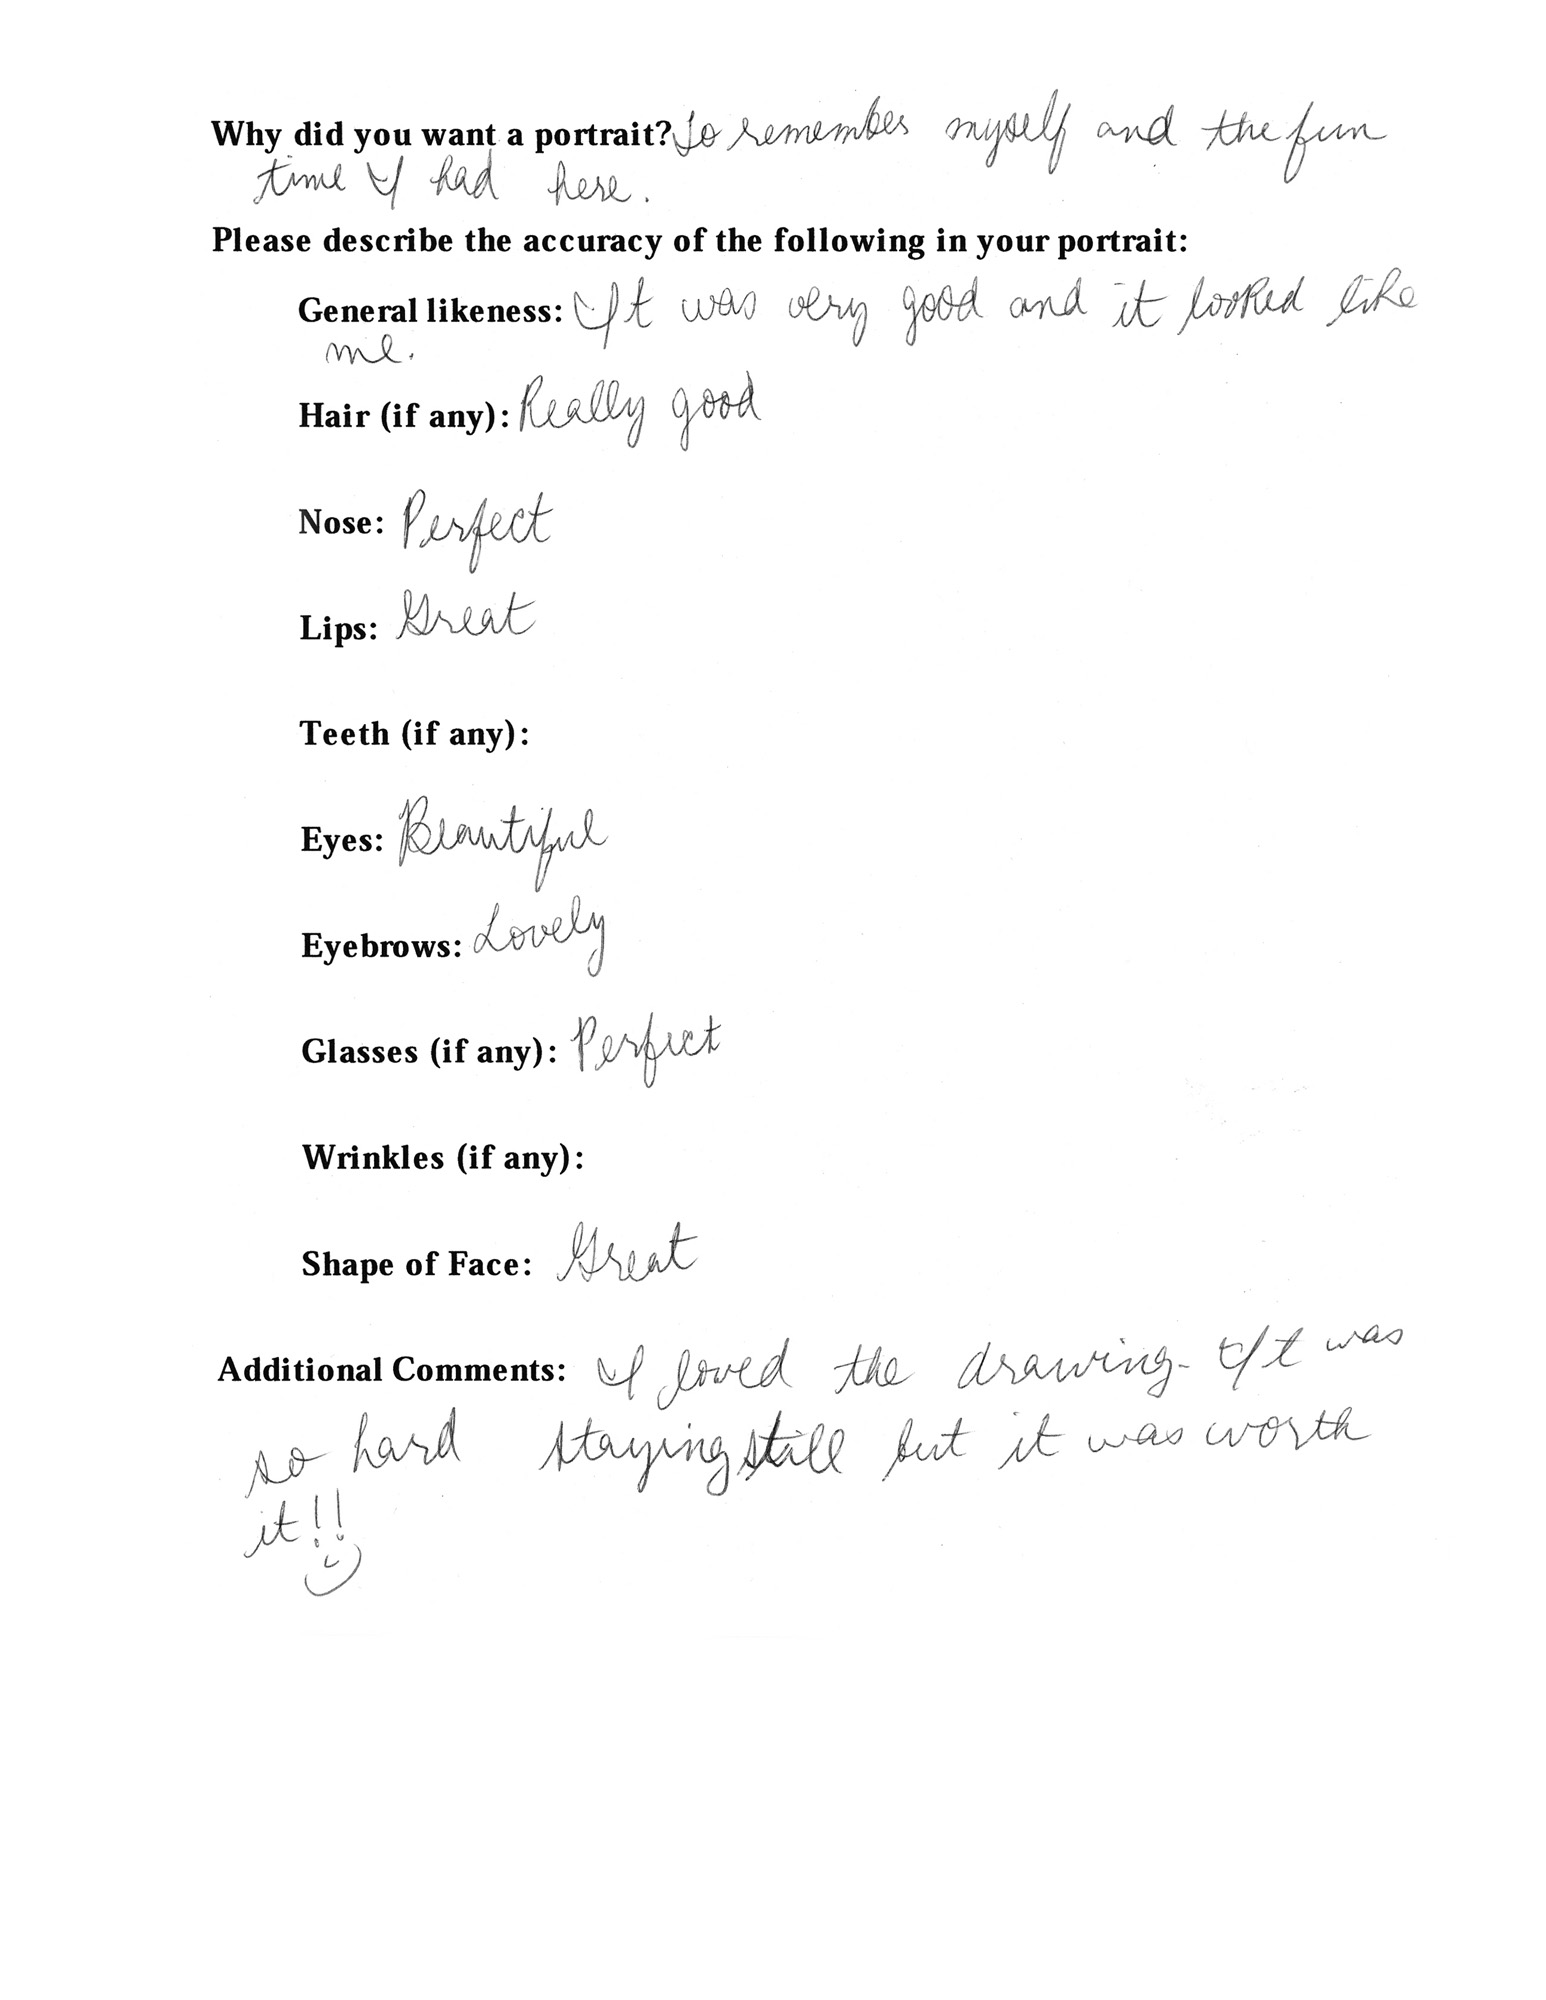 Why did you want a portrait? To remember myself and the fun
time I had here.
Please describe the accuracy of the following in your portrait:
General likeness: It was very good and it looked like
me.
Hair (if any): Really good
Nose: Perfect
Lips: Great
Teeth (if any):
Eyes: Beautiful
Eyebrows: Lovely
Glasses (if any): Perfect
Wrinkles (if any):
Shape of Face: Great
Additional Comments: I loved the drawing. It was
so hard staying still but it was worth
it!!